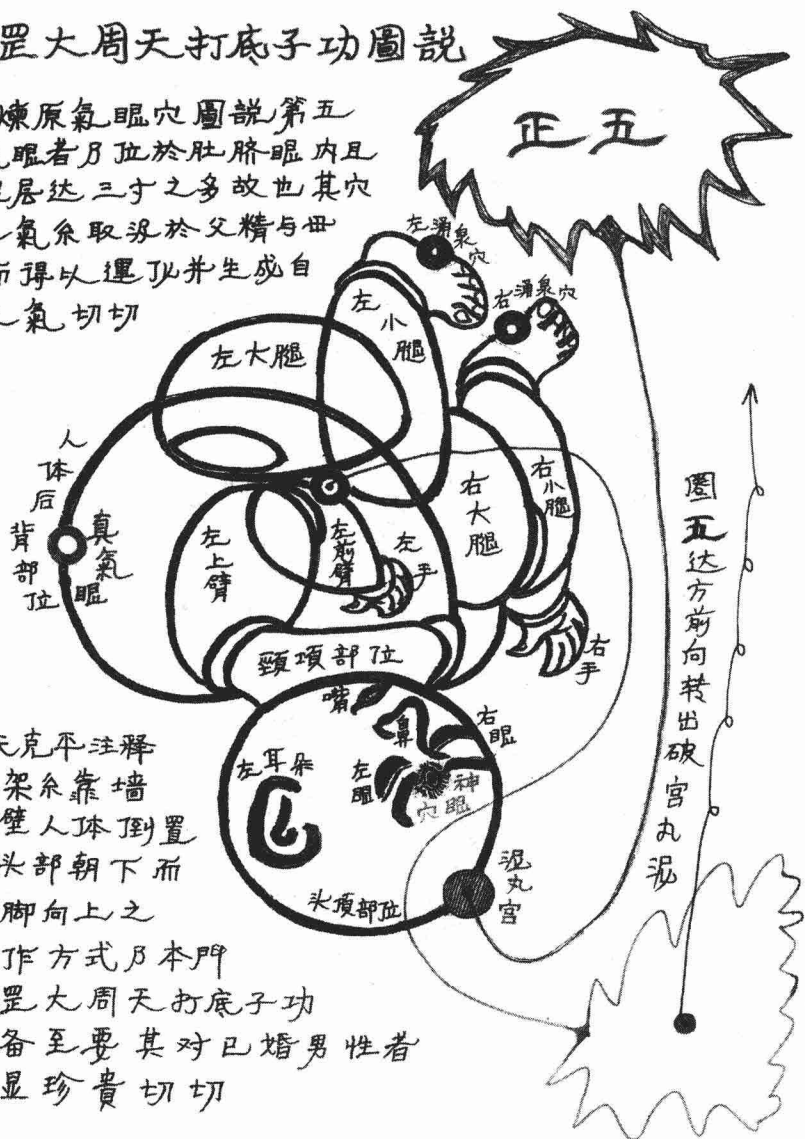 罡大周天打底子功圖説
煉原氣眼穴圖説第五
眼者乃位於肚脐眼内且
层达三寸之多故也其穴
氣系取汲於父精与母
而得以運化并生成自
氣切切
正五
左涌泉穴
右涌泉穴
左小腿
左大腿
右小腿
右大腿
人体后背部位
真氣眼
左上臂
左前臂
左手
右手
頸項部位
嘴
鼻
右眼
左眼
神眼穴
左耳朵
头頂部位
泥丸宮
圈五达方前向转出破宫丸泥
克平注释
架系靠墙
壁人体倒置
头部朝下而
脚向上之
作方式乃本門
罡大周天打底子功
备至要其对已婚男性者
显珍貴切切